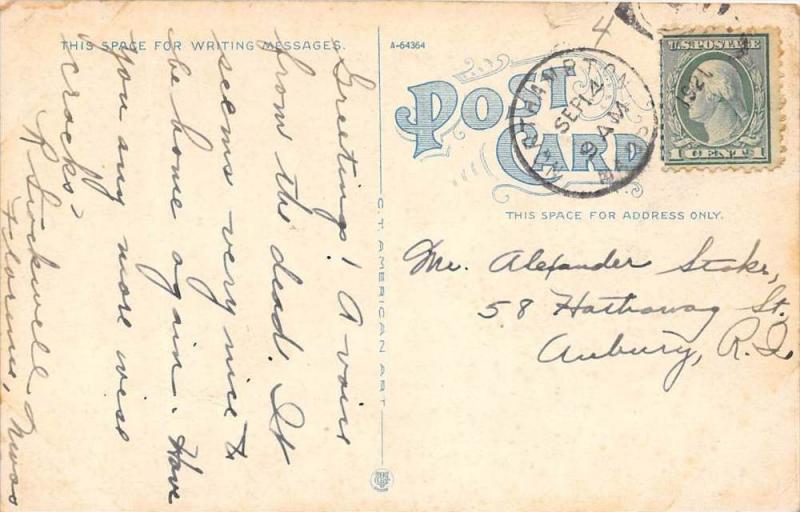 THIS SPACE FOR WRITING MESSAGES.
Greetings! A voice
from the dead. It
seems very nice to
be home again. Have
you any more wise
cracks?
R Stockwell
Florence, Mass
C.T. AMERICAN ART
A-64364
POST
CARD
THIS SPACE FOR ADDRESS ONLY.
NORTHAMPTON
SEP 14
9 AM
MASS
1921
U.S. POSTAGE
1 CENT 1
4
Mr. Alexander Stoke,
58 Hathaway St.
Aubury, R.I.